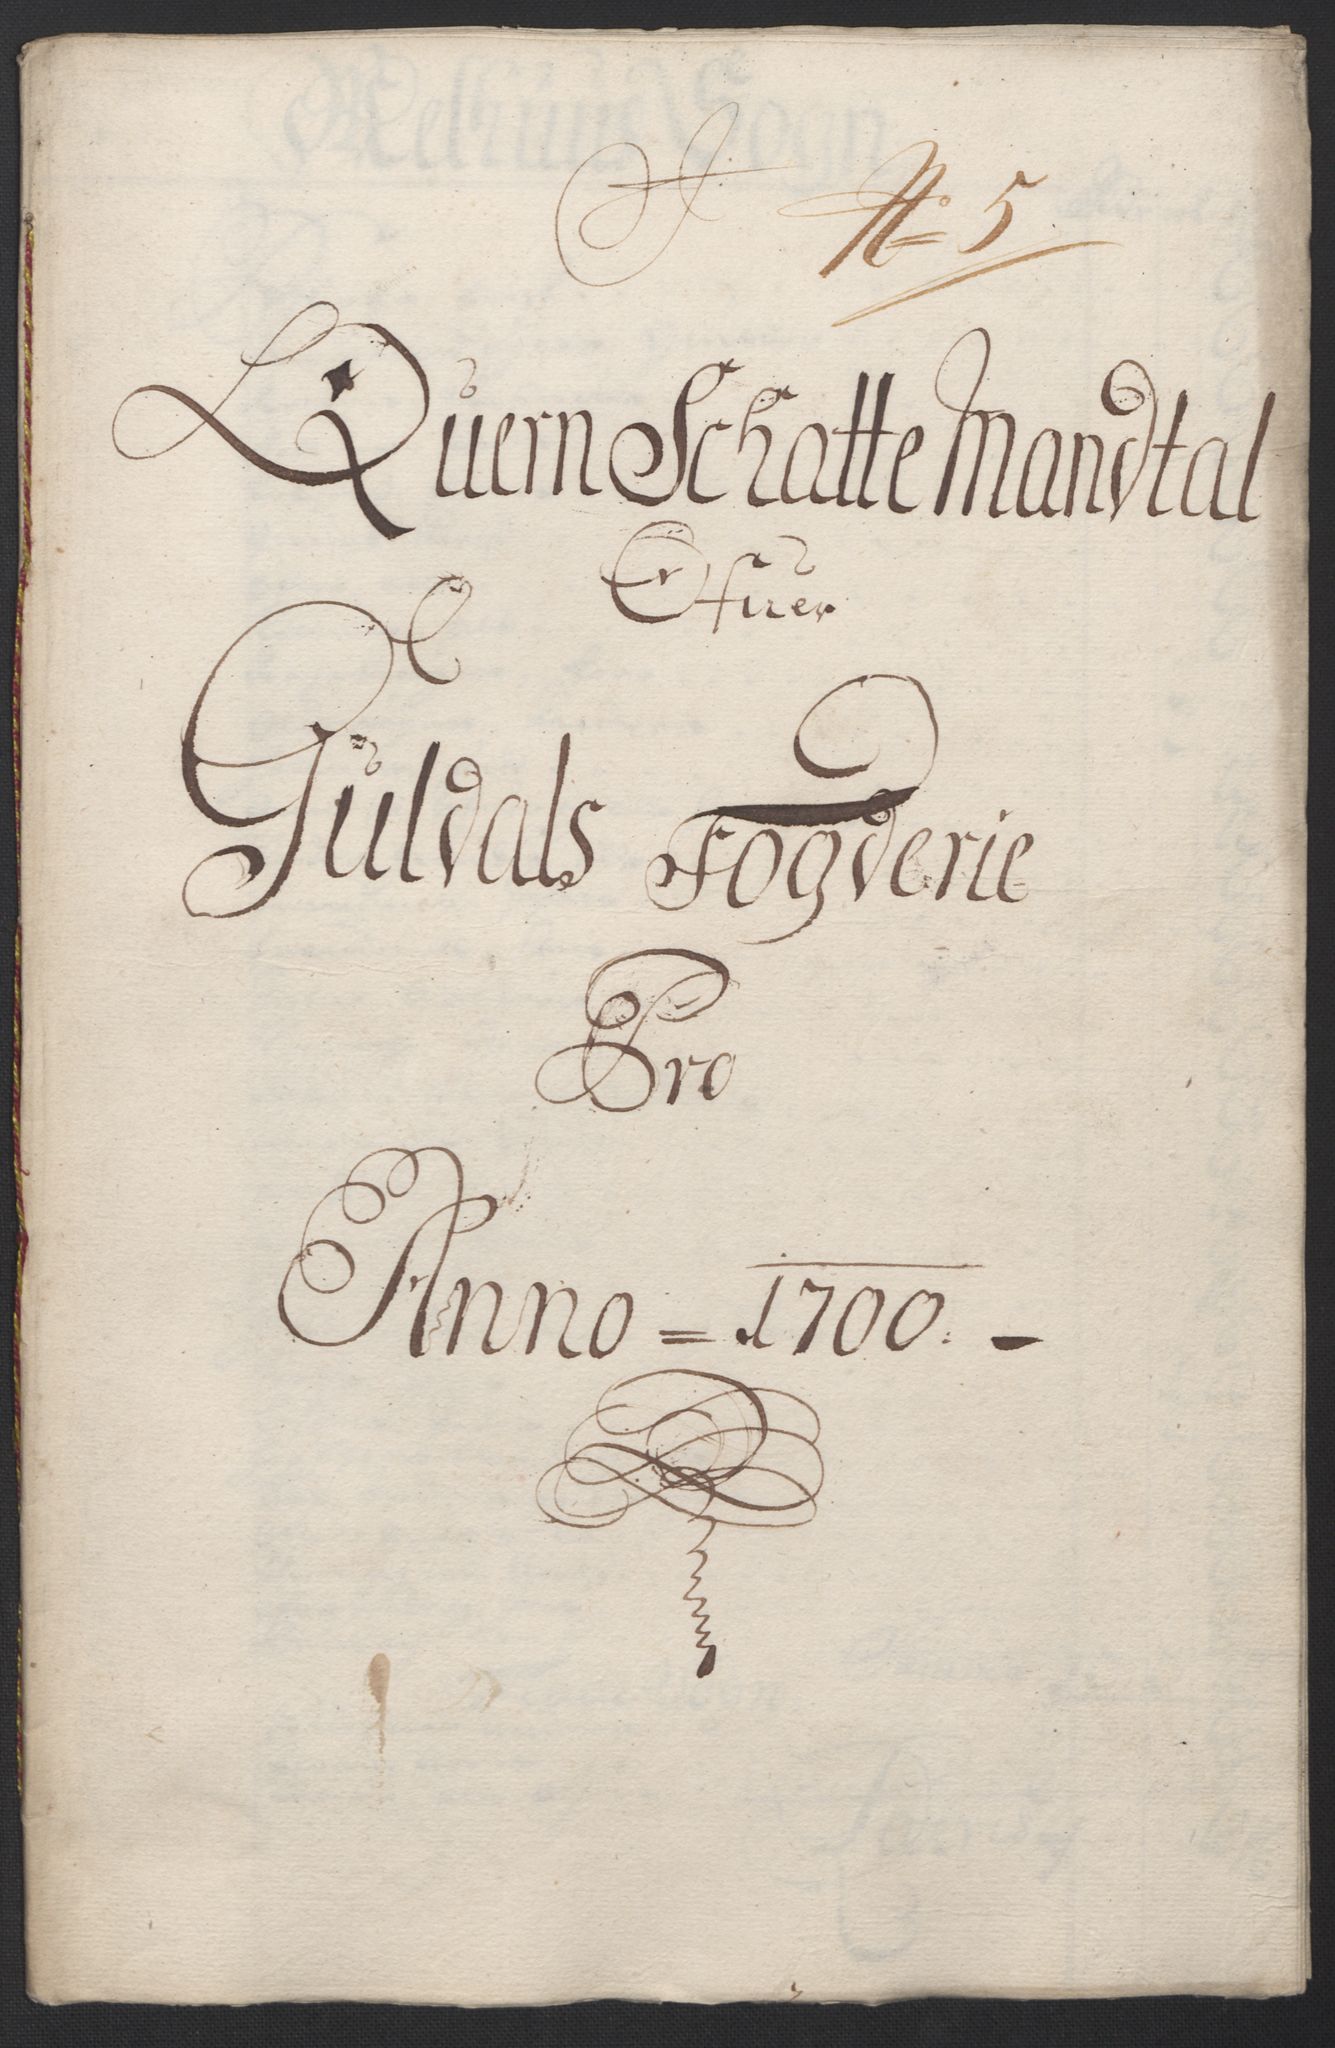 No 5
Quern Schatte Mandtal
Ofuer
Guldals Fogderie
Pro
Anno = 1700. -